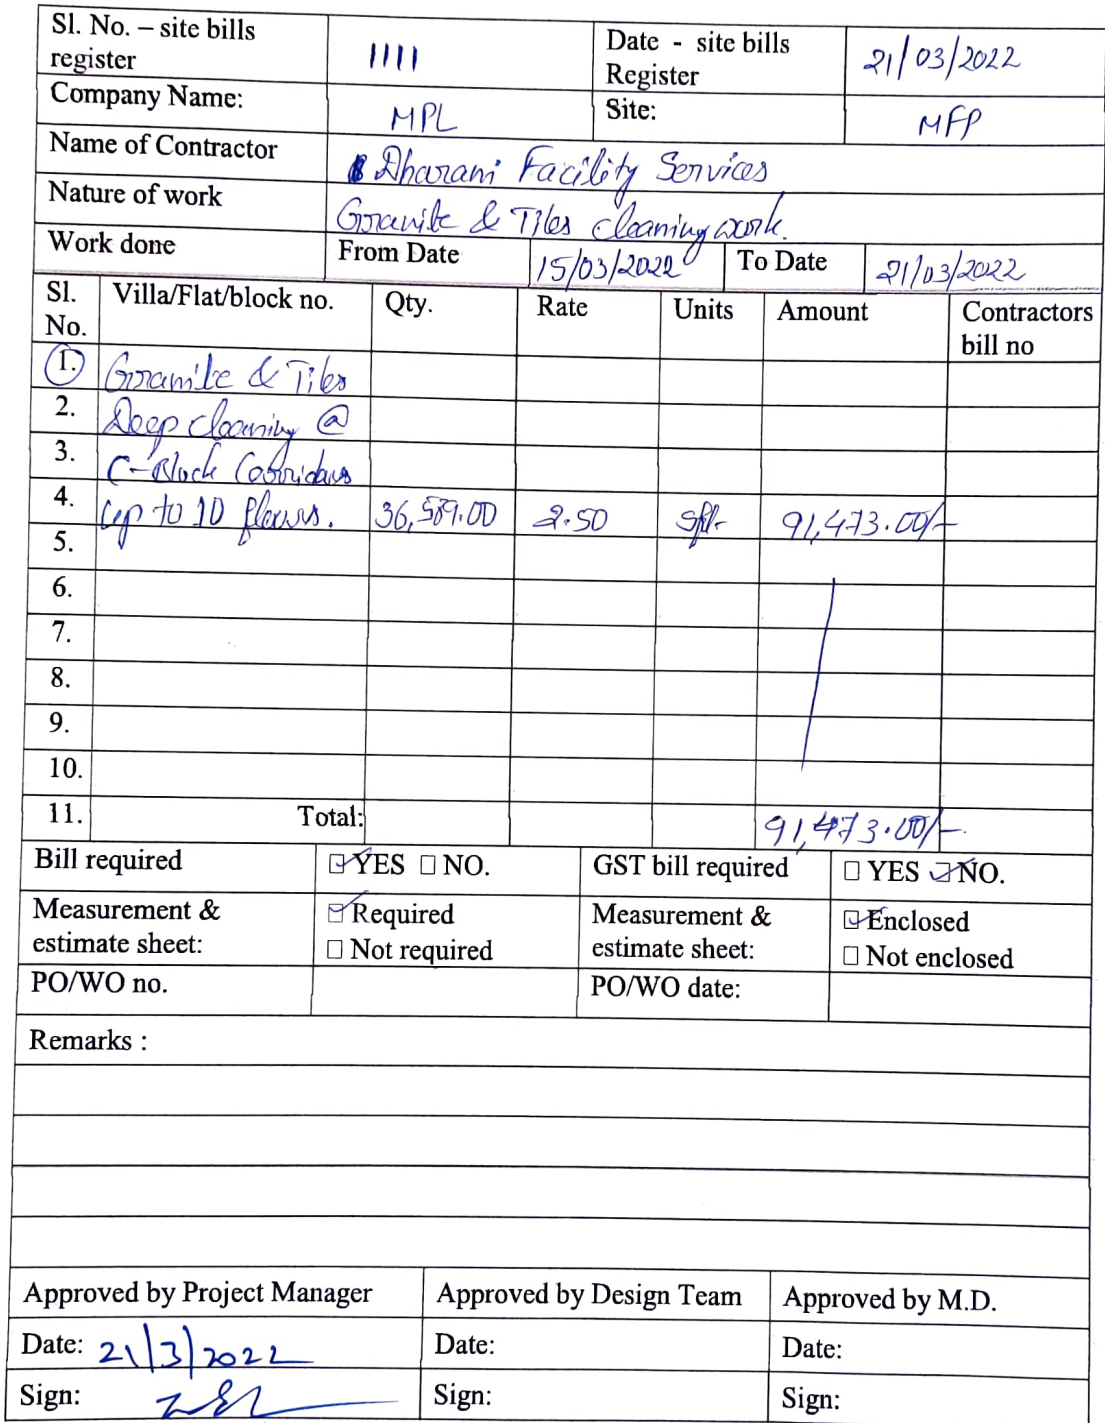 Sl. No. – site bills register 1111 Date - site bills Register 21/03/2022
Company Name: MPL Site: MFP
Name of Contractor Dharani Facility Services
Nature of work Granite & Tiles cleaning work.
Work done From Date 15/03/2022 To Date 21/03/2022
Sl. No. Villa/Flat/block no. Qty. Rate Units Amount Contractors bill no
1. Granite & Tiles
2. Deep cleaning @
3. C-Block Corridors
4. up to 10 floors. 36,589.00 2.50 Sft. 91,473.00/-
5.
6.
7.
8.
9.
10.
11. Total: 91,473.00/-
Bill required YES NO. GST bill required YES NO.
Measurement & estimate sheet: Required Not required Measurement & estimate sheet: Enclosed Not enclosed
PO/WO no. PO/WO date:
Remarks :
Approved by Project Manager Approved by Design Team Approved by M.D.
Date: 21/3/2022 Date: Date:
Sign: Sign: Sign: